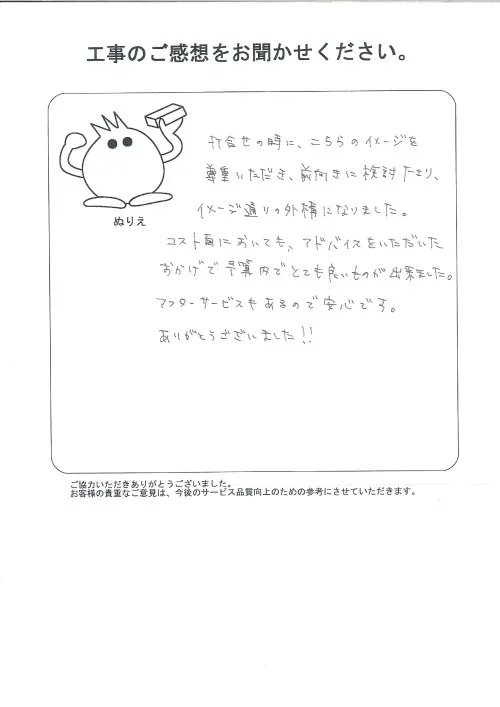 工事のご感想をお聞かせください。
打合せの時に、こちらのイメージを
尊重いただき、前向きに検討下さり、
イメージ通りの外構になりました。
コスト面においても、アドバイスをいただいた
おかげで予算内でとても良いものが出来ました。
アフターサービスもあるので安心です。
ありがとうございました!!
ぬりえ
ご協力いただきありがとうございました。
お客様の貴重なご意見は、今後のサービス品質向上のための参考にさせていただきます。